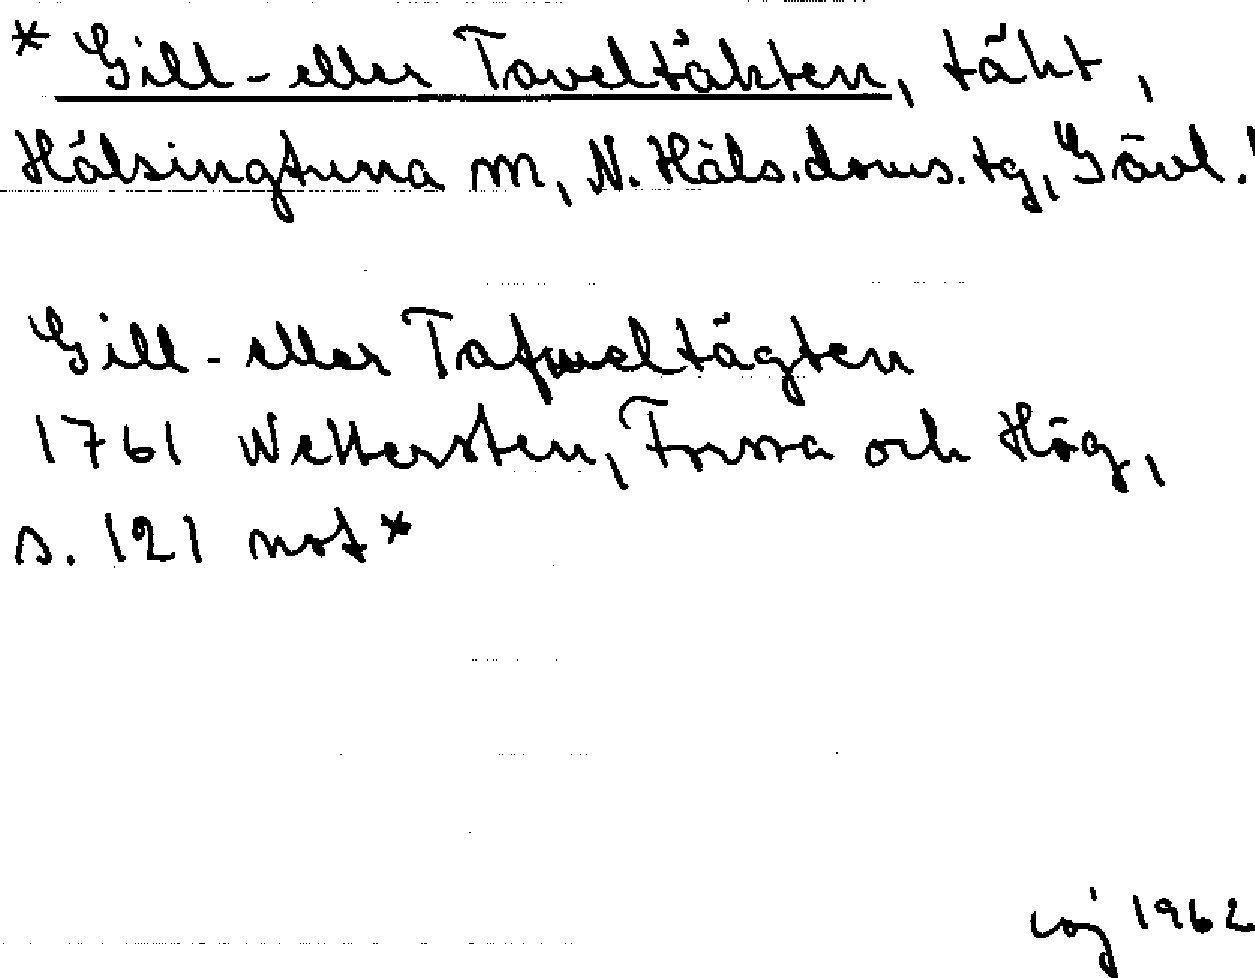 * Gill- eller Taveltäkten, täkt,
Hälsingtuna sn, N. Häls. doms. tg, Gävl. l
Gill- eller Tafweltägten
1761 Wettersten, Forssa och Hög,
s. 121 not *
1962